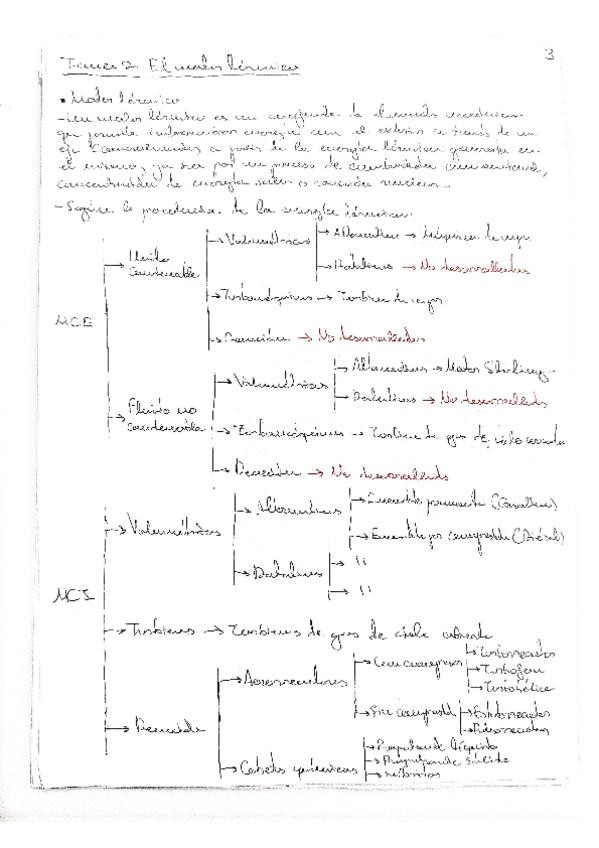 3
Tema 2. El motor térmico
• Motor térmico
- Un motor térmico es un conjunto de elementos mecánicos
que permite intercambiar energía con el exterior a través de un
eje a partir de la energía térmica generada en
el mismo, ya sea por un proceso de combustión
de energía solar o nuclear
- Según la procedencia de la energía térmica.
MCE
Fluido condensable
Volumétricos
Alternativos → Máquina de vapor
Rotativos → No desarrollados
Turbomáquinas → Turbina de vapor
Reacción → No desarrollados
Fluido no condensable
Volumétricos
Alternativos → Motor Stirling
Rotativos → No desarrollado
Turbomáquinas → Turbina de gas de ciclo cerrado
Reacción → No desarrollado
MCI
Volumétricos
Alternativos
Encendido (Gasolina)
Encendido por compresión (Diésel)
Rotativos
→ "
→ "
Turbinas → Turbinas de gas de ciclo abierto
Reacción
Aerorreactores
Con compresor
Turborreactor
Turbofan
Turbohélice
Sin compresor
Estatorreactor
Pulsorreactor
Cohetes químicos
Propulsante líquido
Propulsante sólido